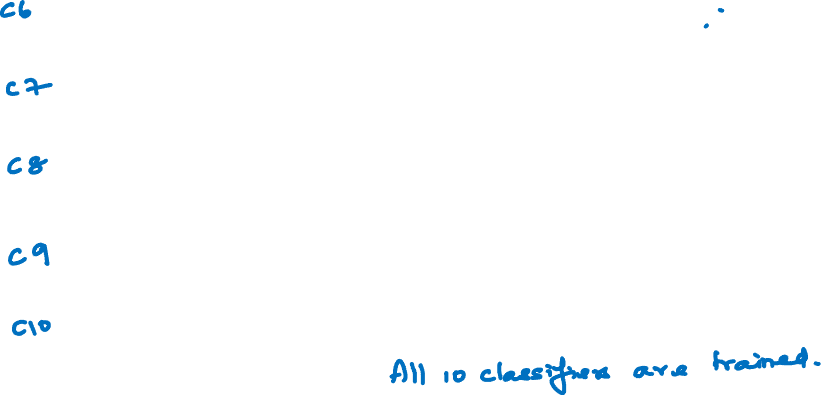 C6
C7
C8
C9
C10
All 10 classifiers are trained.